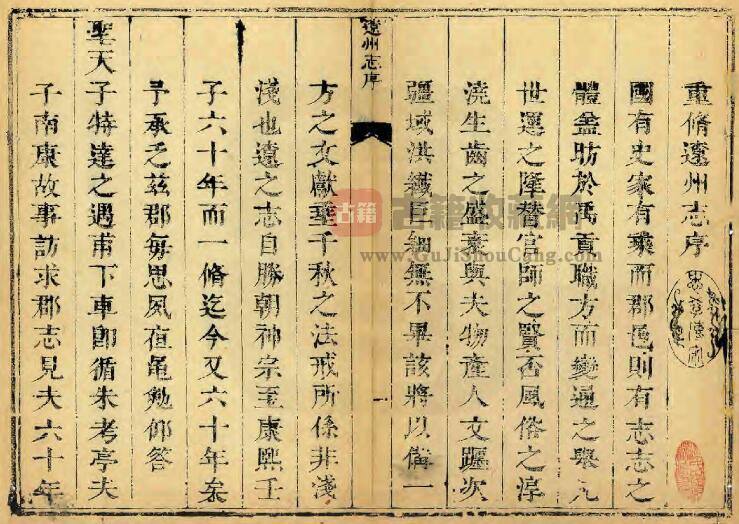 重脩遼州志序
國有史家有乗而郡邑則有志志之
體葢昉於禹貢職方而變通之舉凡
世運之隆替官師之賢否風俗之淳
澆生齒之盛衰與夫物產人文躔次
疆域洪纖巨細無不畢該將以備一
遼州志序
方之文獻垂千秋之法戒所係非淺
淺也遼之志自勝朝神宗至康熙壬
子六十年而一脩迄今又六十年矣
予承乏茲郡每思夙夜黽勉仰答
聖天子特達之遇甫下車卽循朱考亭夫
子南康故事訪求郡志見夫六十年
古籍
古籍收藏網
www.GuJiShouCang.com